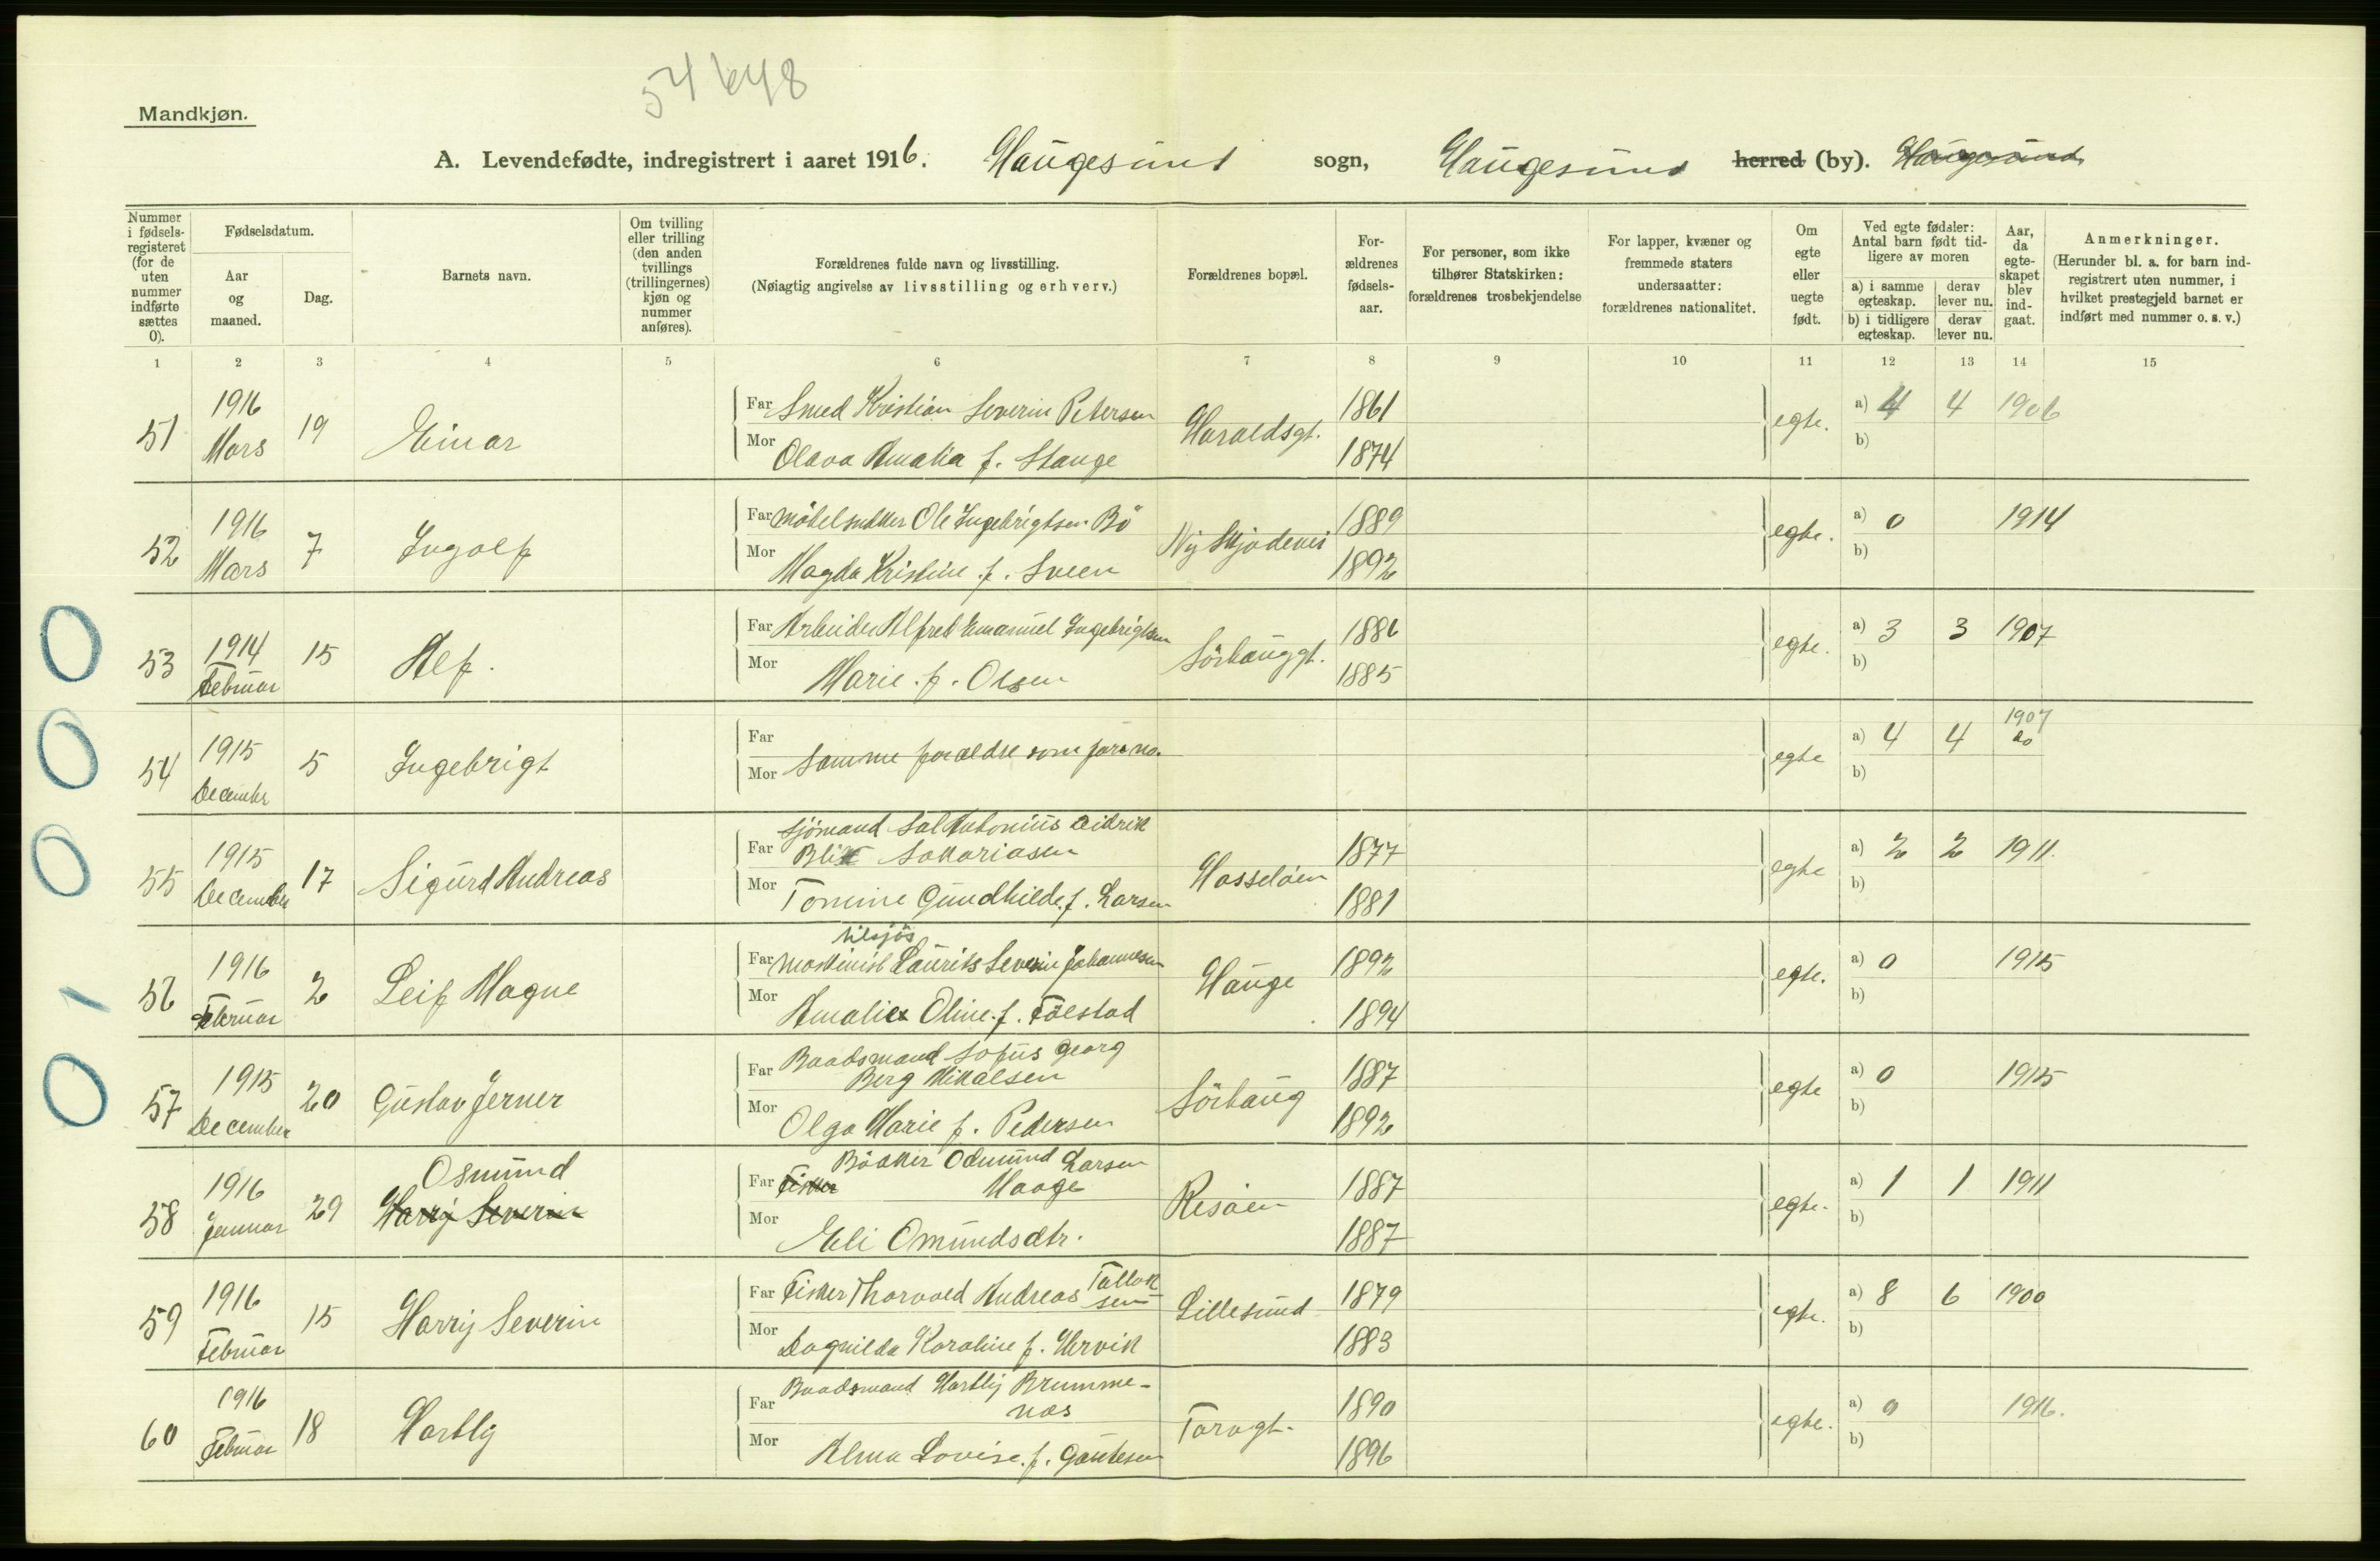 54648
Mandkjøn.
A. Levendefødte, indregistrert i aaret 1916. Haugesund sogn, Haugesund herred (by). Haugesund
Nummer i fødsels-registeret (for de uten nummer indførte sættes 0).
Fødselsdatum.
Aar og maaned.
Dag.
Barnets navn.
Om tvilling eller trilling (den anden tvillings (trillingernes) kjøn og nummer anføres).
Forældrenes fulde navn og livsstilling.
(Nøiagtig angivelse av livsstilling og erhverv.)
Forældrenes bopæl.
For-ældrenes fødsels-aar.
For personer, som ikke tilhører Statskirken: forældrenes trosbekjendelse
For lapper, kvæner og fremmede staters undersaatter: forældrenes nationalitet.
Om egte eller uegte født.
Ved egte fødsler: Antal barn født tid-ligere av moren
a) i samme egteskap.
derav lever nu.
b) i tidligere egteskap.
derav lever nu.
Aar, da egte-skapet blev ind-gaat.
Anmerkninger.
(Herunder bl. a. for barn ind-registrert uten nummer, i hvilket prestegjeld barnet er indført med nummer o. s. v.)
1 2 3 4 5 6 7 8 9 10 11 12 13 14 15
51 1916 Mars 19 Einar
Far Smed Kristian Severin Petersen Haraldsgt. 1861 egte. a) 4 4 1906
Mor Olava Amalia f. Stange 1874 b)
52 1916 Mars 7 Ingolf
Far Møbelsnekker Ole Ingebrigtsen Bö Ny Skjodevei 1889 egte. a) 0 1914
Mor Magda Kristine f. Sveen 1892 b)
0 53 1914 Februar 15 Alf.
Far Arbeider Alfred Emanuel Ingebrigtsen Sörhauggt. 1886 egte. a) 3 3 1907
Mor Marie f. Olsen 1885 b)
0 54 1915 December 5 Ingebrigt
Far
Mor Samme foræeldre som før no. egte a) 4 4 1907 do
b)
0 55 1915 December 17 Sigurd Andreas
Far Sjömand Sal Antonius Didrik
Blix Sakariasen Hasselöen 1877 egte a) 2 2 1911.
Mor Tomine Gundhilde f. Larsen 1881 b)
1 56 1916 Februar 2 Leif Magne
tilsjös
Far Maskinist Laurits Severin Johannesen Hauge 1892 egte. a) 0 1915
Mor Amalie Oline f. Tölestad 1894 b)
0 57 1915 December 20 Gustav Jerner
Far Baadsmand Sofus Georg
Berg Mikalsen Sörhaug 1887 egte a) 0 1915
Mor Olga Marie f. Pedersen 1892 b)
58 1916 Januar 29 Osmund
Harry Severin
Far Bödker Odmund Larsen
Fisker Haage Risöen 1887 egte. a) 1 1 1911
Mor Eli Omundsdtr. 1887 b)
59 1916 Februar 15 Harry Severin
Far Fisker Thorvald Andreas Tallak
sen Lillesund 1879 egte. a) 8 6 1900
Mor Dagnilda Karoline f. Hervik 1883 b)
60 1916 Februar 18 Hartly
Far Baadsmand Hartly Brumme-
nes Torvgt. 1890 egte. a) 0 1916.
Mor Alma Lovise f. Gautesen 1896 b)